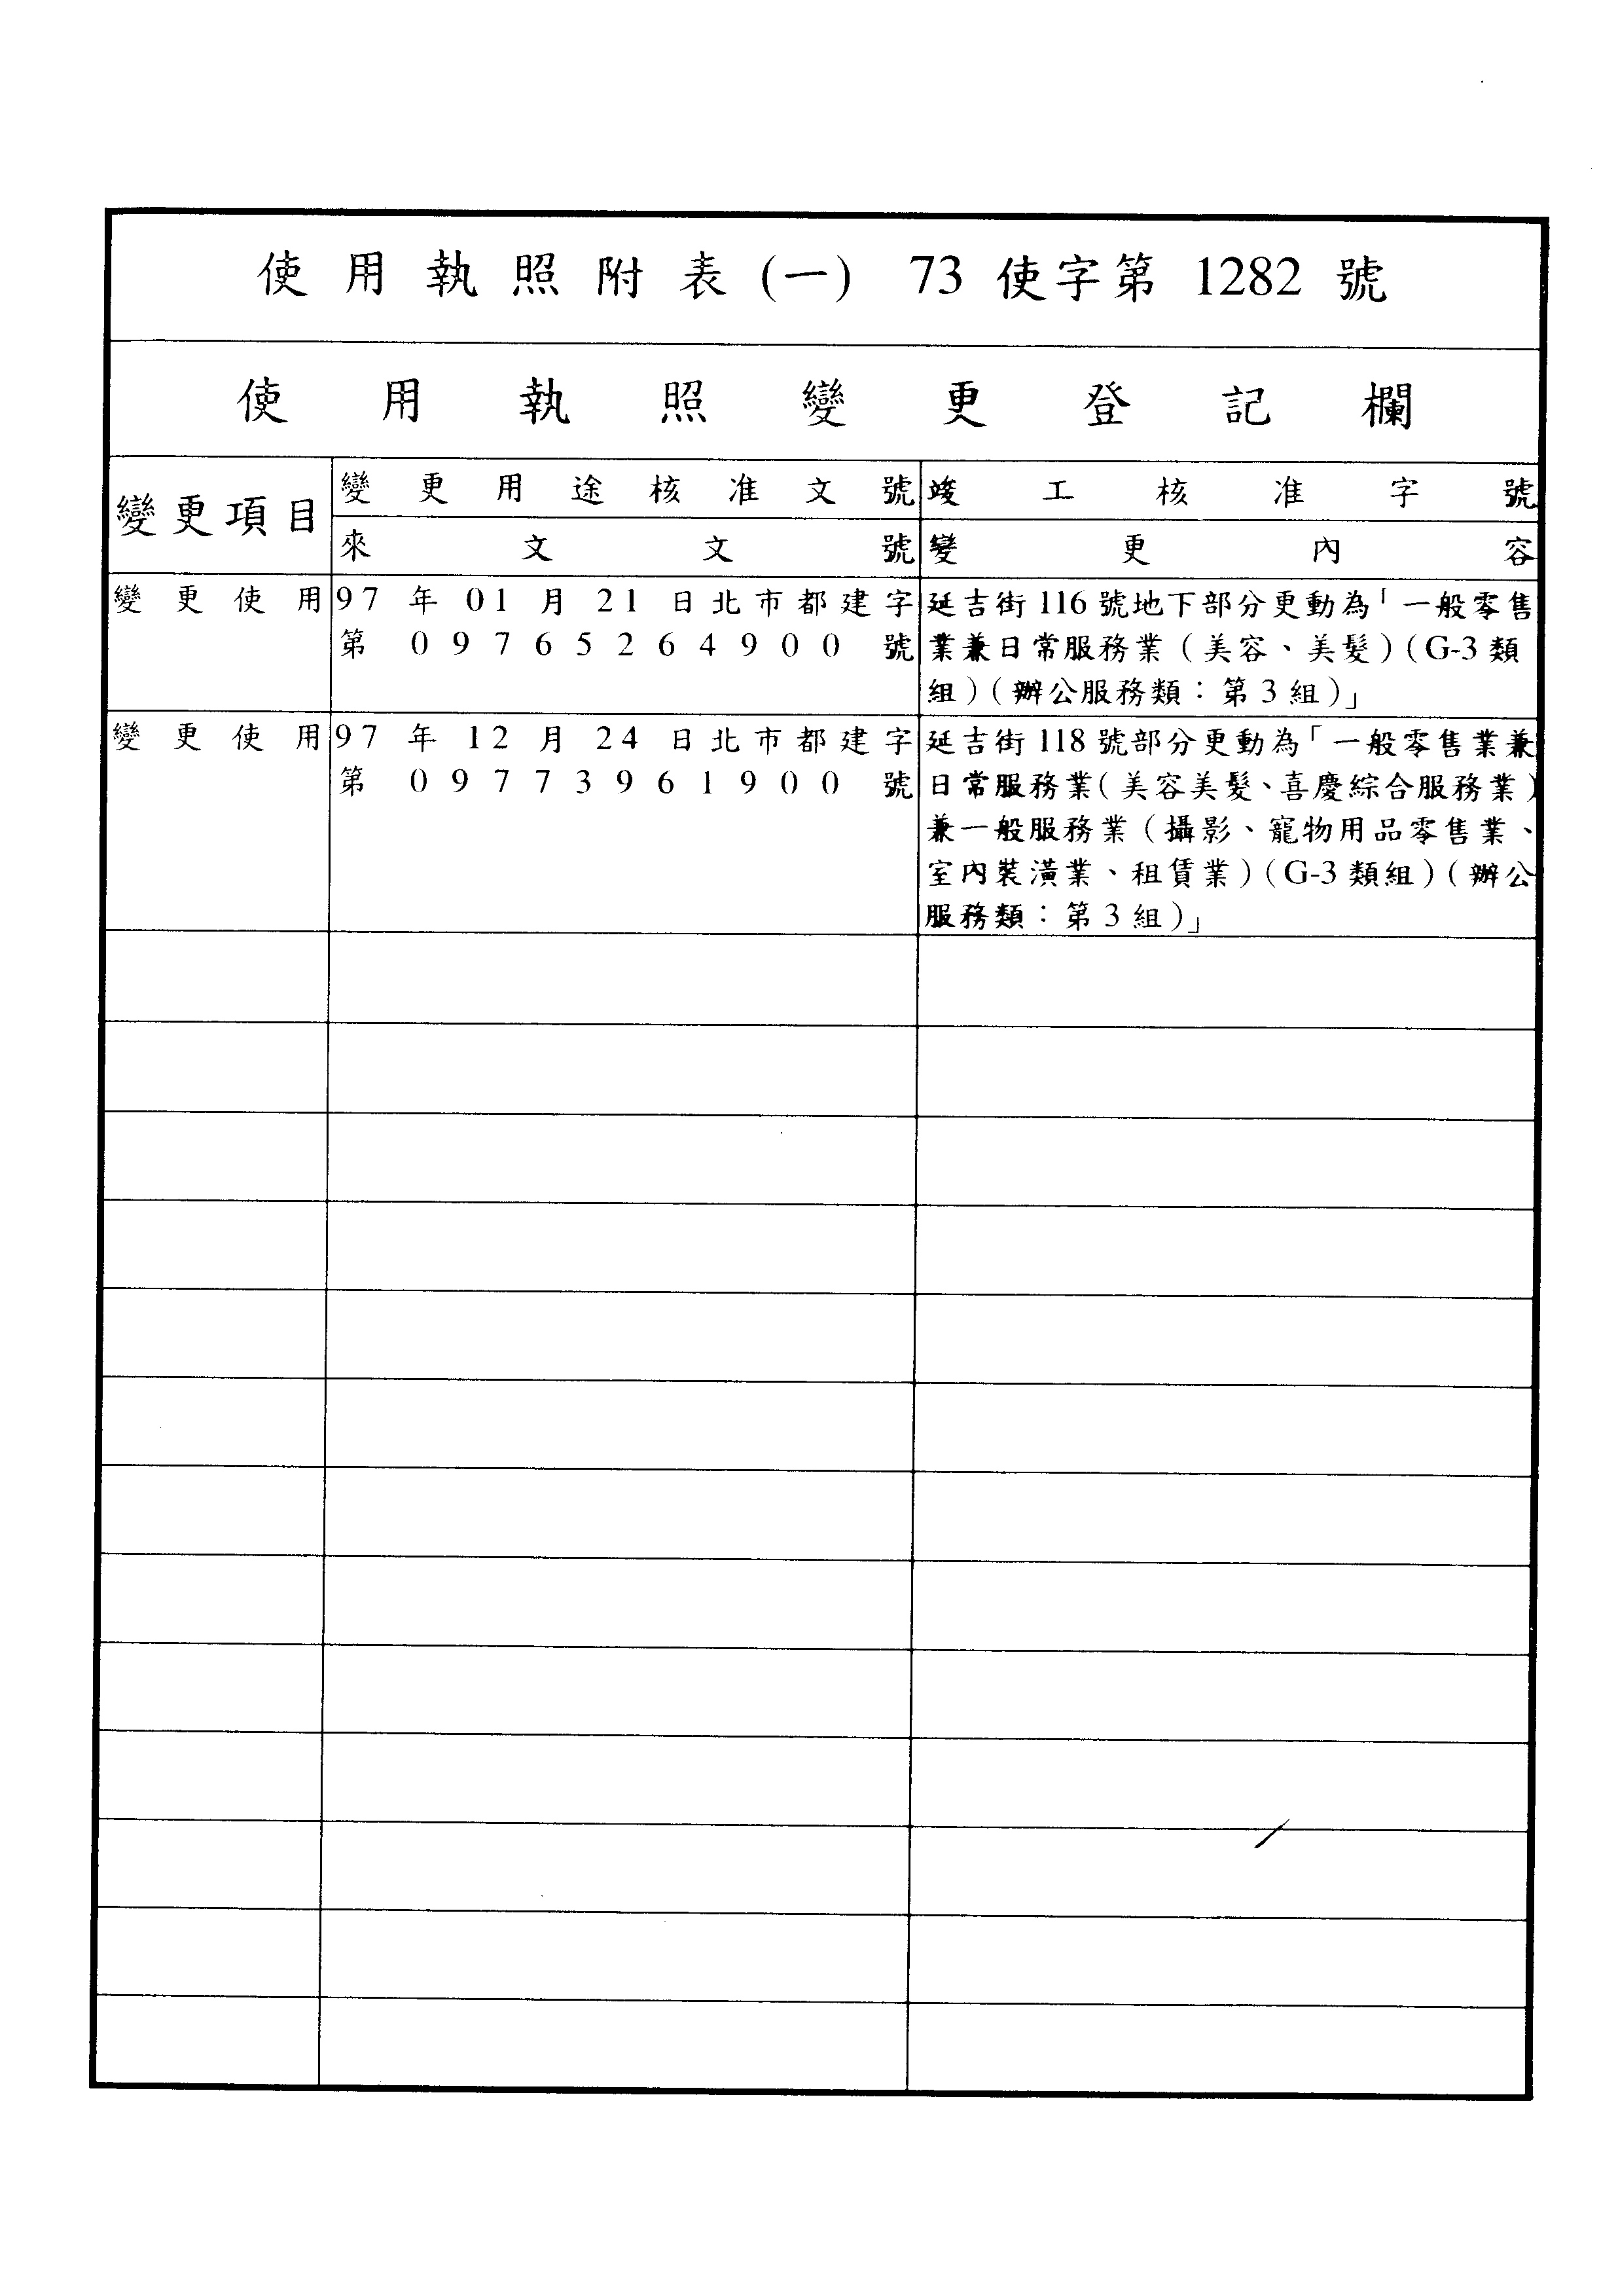 使用執照附表(一) 73 使字第 1282 號
使用執照變更登記欄
變更項目
變更用途核准文號
竣工核准字號
來文文號
變更內容
變更使用
97年01月21日北市都建字
第09765264900號
延吉街116號地下部分更動為「一般零售
業兼日常服務業(美容、美髮)(G-3類
組)(辦公服務類:第3組)」
變更使用
97年12月24日北市都建字
第09773961900號
延吉街118號部分更動為「一般零售業兼
日常服務業(美容美髮、喜慶綜合服務業)
兼一般服務業(攝影、寵物用品零售業、
室內裝潢業、租賃業)(G-3類組)(辦公
服務類:第3組)」